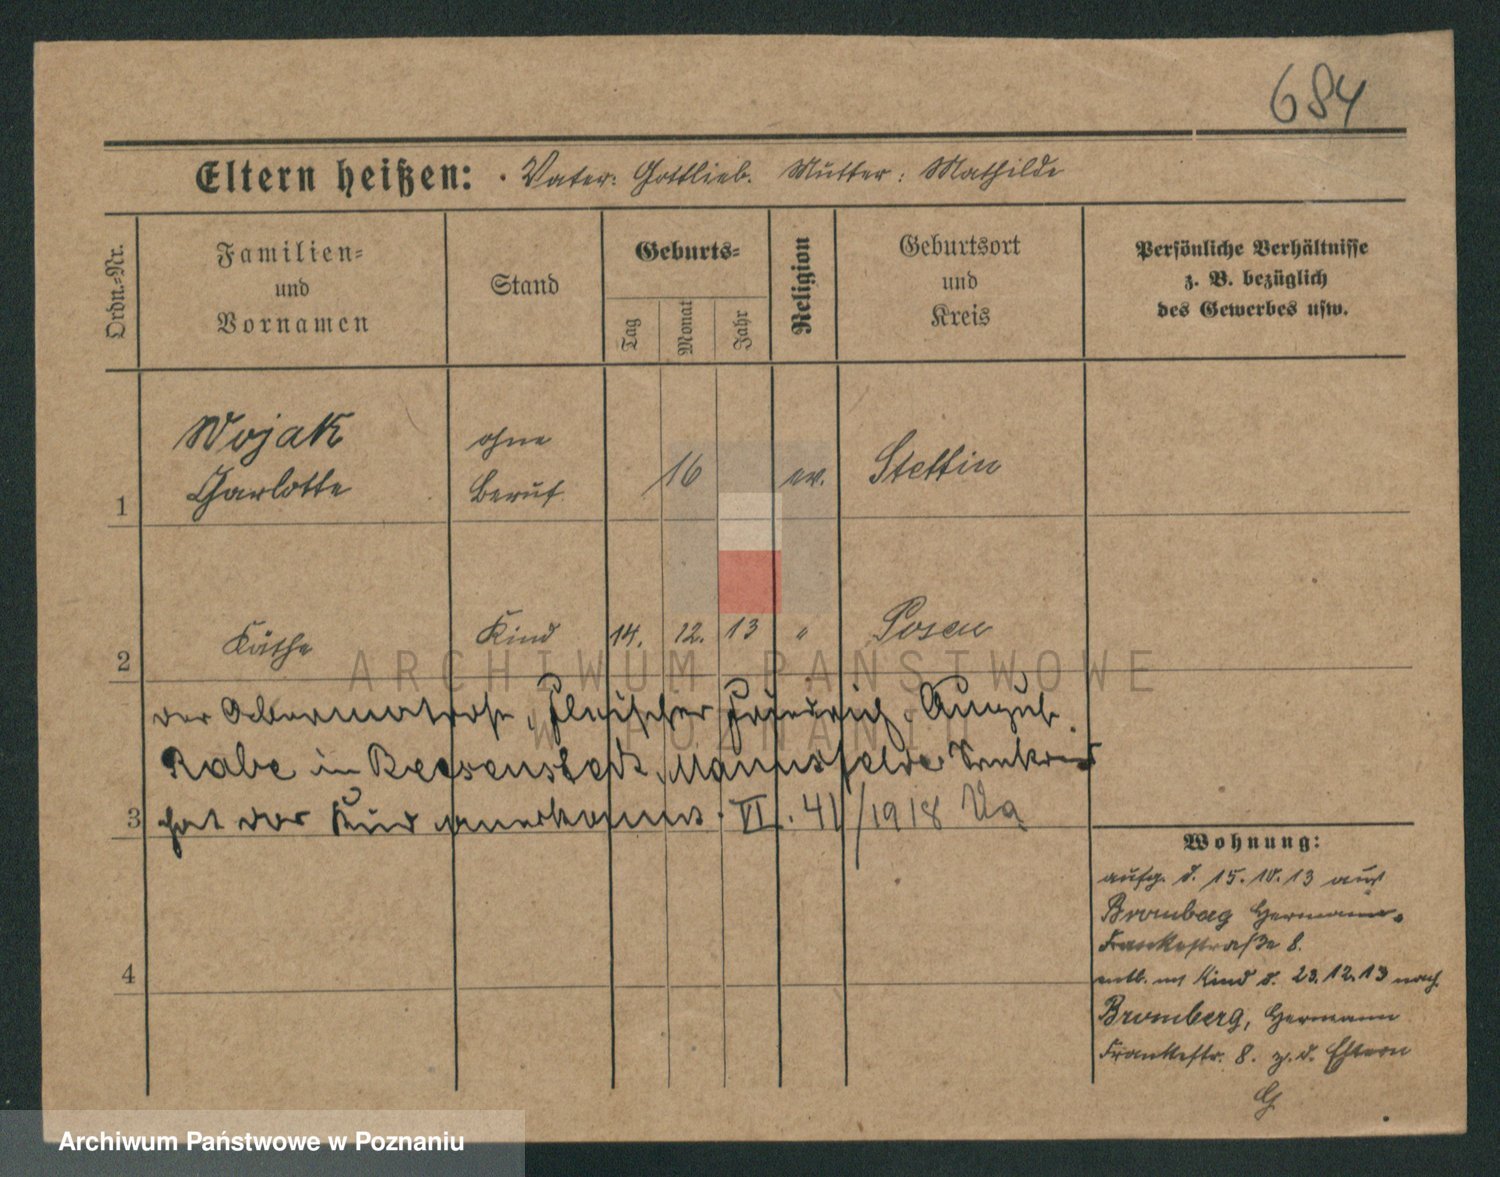 684
Eltern heißen: Vater: Gottlieb. Mutter: Mathilde
Ordn.=Nr.
Familien=
und
Vornamen
Stand
Geburts=
Tag
Monat
Jahr
Religion
Geburtsort
und
Kreis
Persönliche Verhältnisse
z. B. bezüglich
des Gewerbes usw.
Wojak
Charlotte
ohne
Beruf.
16
ev.
Stettin
1
Käthe
Kind
14. 12. 13
"
Posen
2
der Obermatrose, Fleischer Friedrich August
Rabe in Beesenstedt, Mannsfelder Seekreis
3 hat das Kind anerkannt. VI. 41/1918
Wohnung:
aufg. d. 15.10.13 aus
Bromberg Hermann-
Frankestraße 8.
4
entb. mit Kind d. 23.12.13 nach
Bromberg, Hermann
Frankestr. 8. z. d. Eltern
ARCHIWUM PAŃSTWOWE
W POZNANIU
Archiwum Państwowe w Poznaniu